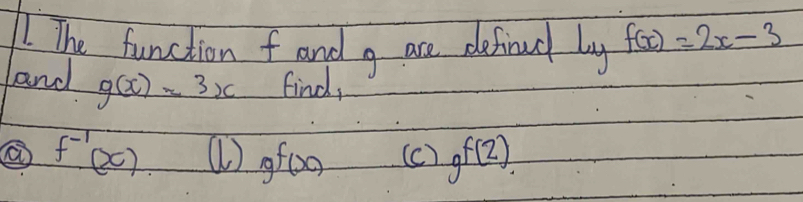 1. The function f and g are defined by f(x) = 2x - 3
and g(x) = 3x find,
(a) f⁻¹(x) (b) gf(x) (c) gf(2)